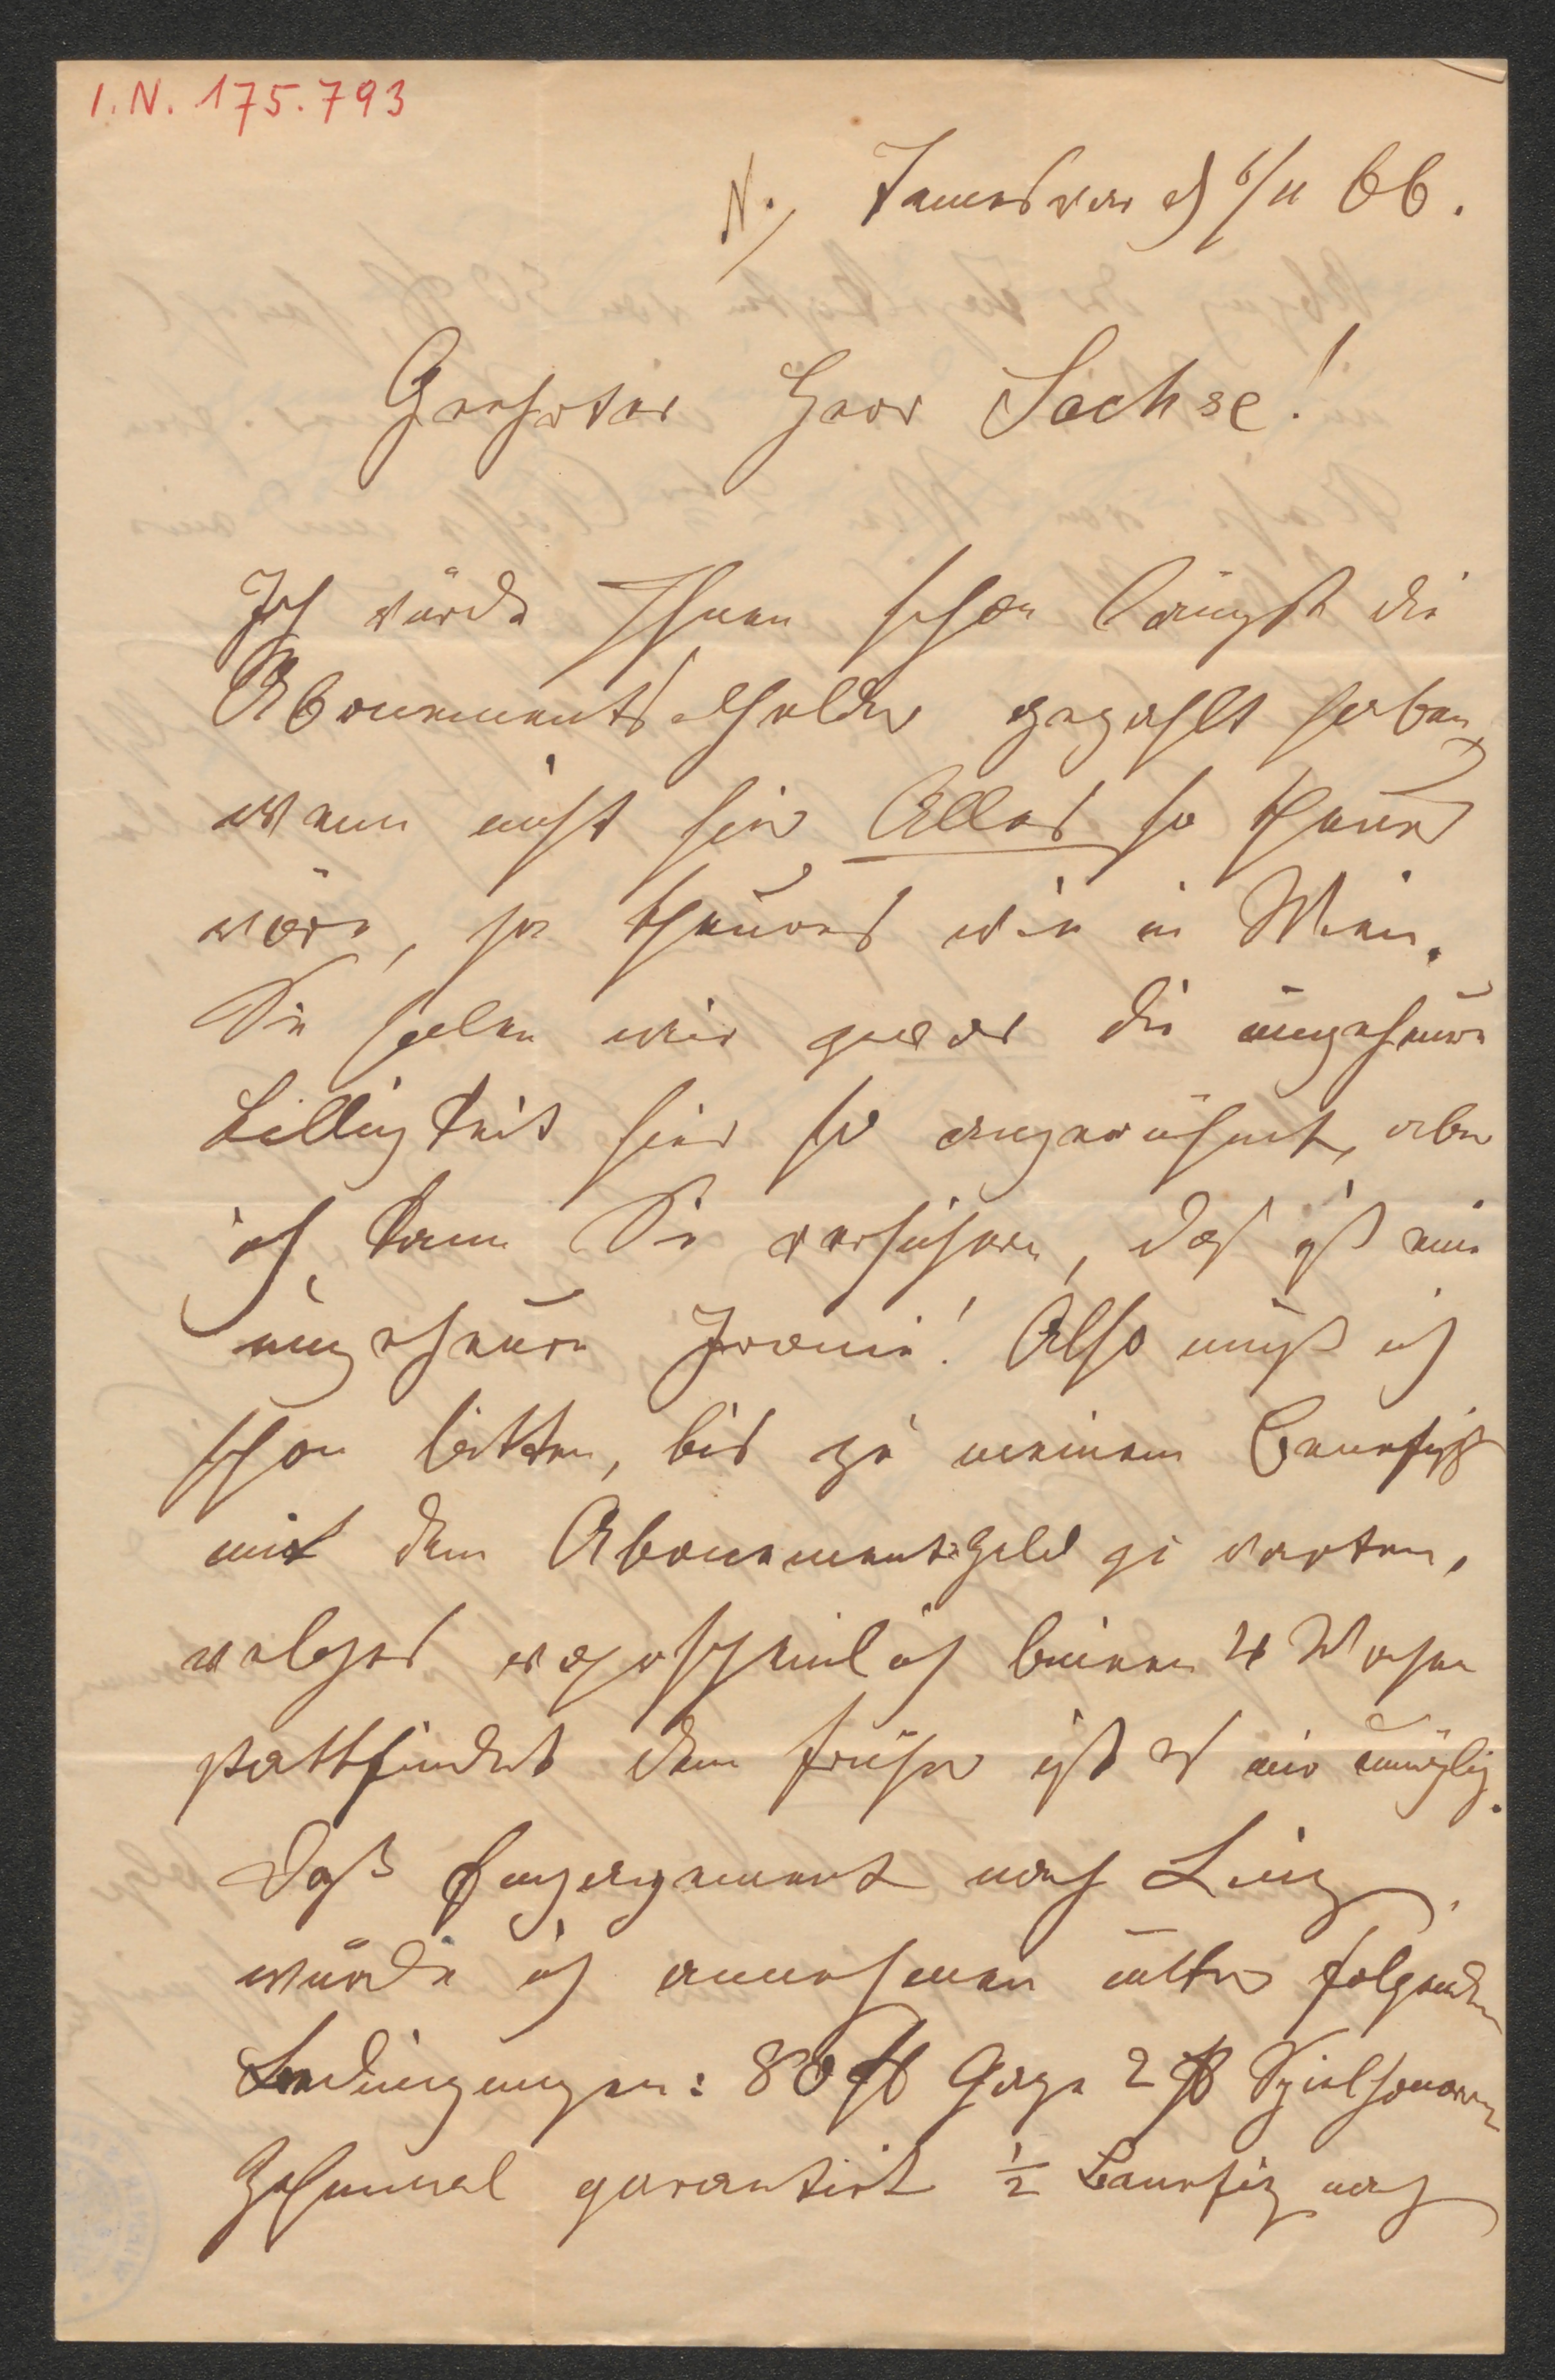 I. N. 175.793
N. Temesvar d 6/11 66.
Geehrter Herr Sachse!
Ich würde Ihnen schon längst die
Abonements Gelder gezahlt haben,
wenn nicht hier Alles so theuer
wäre, so theures wie in Wien.
Sie haben mir zwar die ungeheure
Billigkeit hier so angerühmt, aber
ich kann Sie versichern, das ist eine
ungeheure Ironie! Also muß ich
schon bitten, bis zu meinem Benefiz
mit dem Abonement=Geld zu warten,
welches warscheinlich binnen 4 Wochen
stattfindet denn früher ist es mir unmöglich.
Daß Engagement nach Linz
würde ich annehmen unter folgenden
Bedingungen: 80 fl Gage 2 fl Spielhonorar
Zehnmal garantirt ½ Benefiz nach